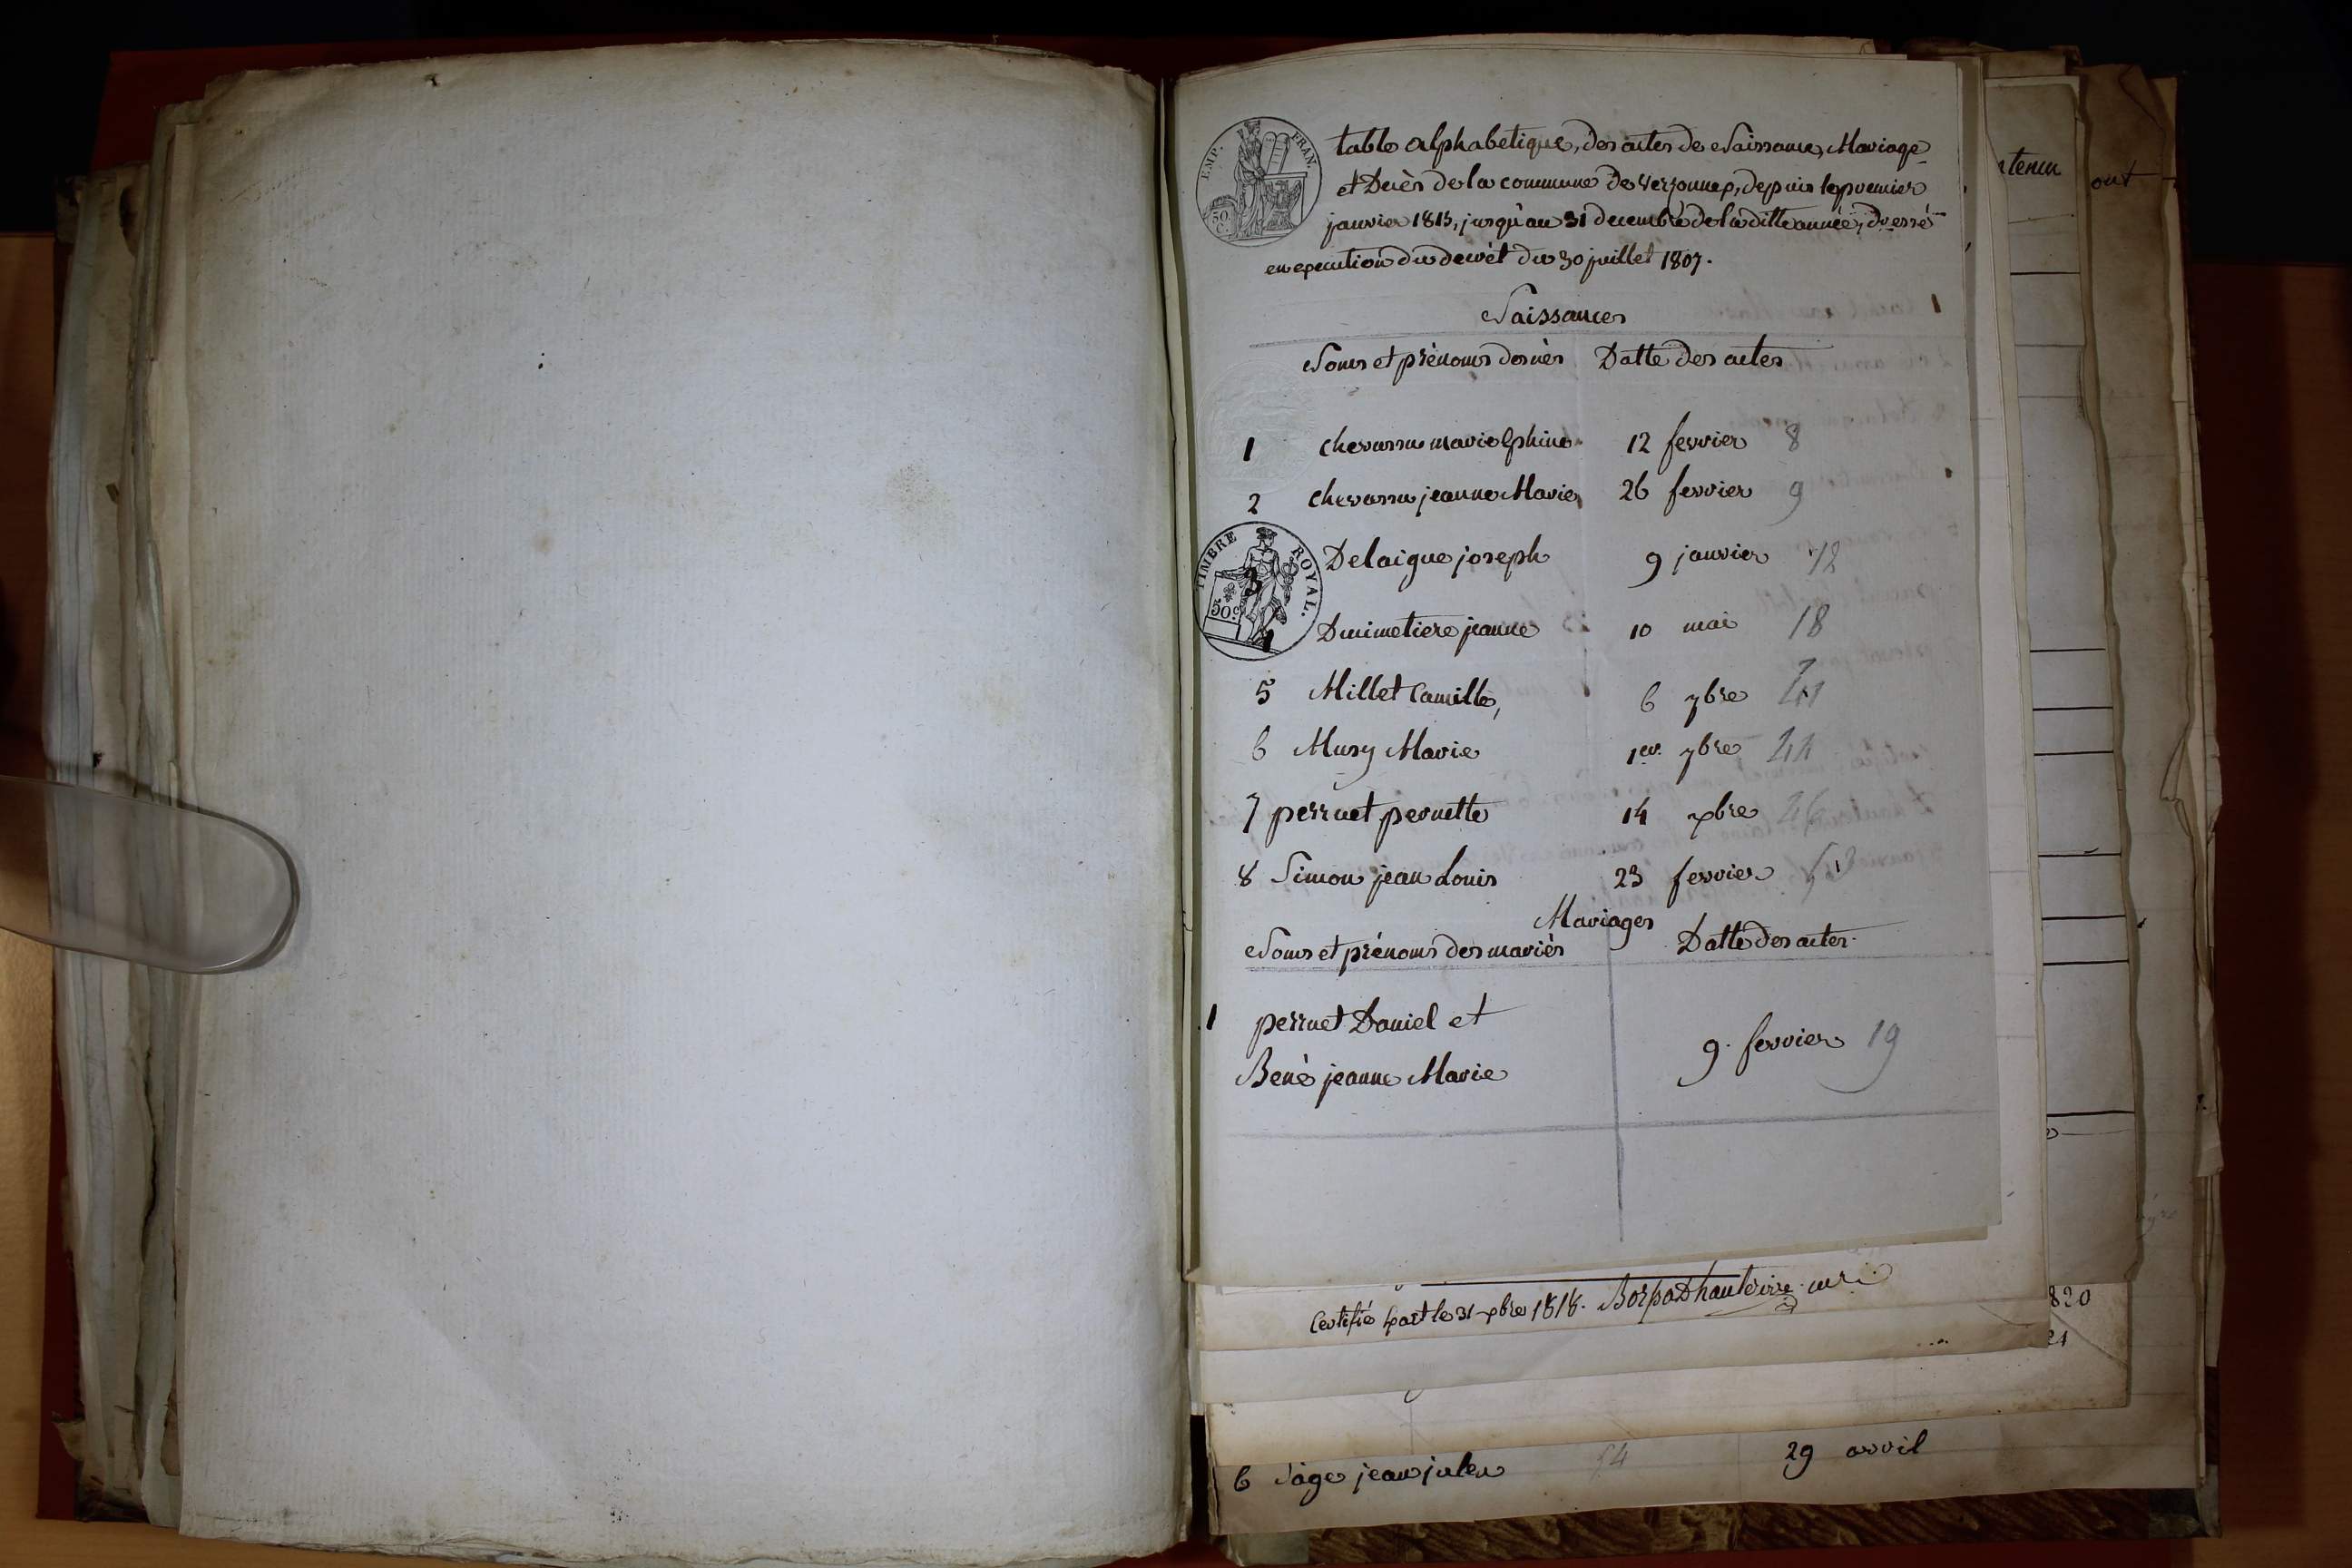 EMP. FRAN.
50 C.
table alphabetique, des actes de Naissance, Mariage
et Decès de la commune de Verjonnep, depuis le premier
janvier 1815, jusqu'au 31 decembre de la ditte année, dressé
en execution du decrèt du 30 juillet 1807.
Naissances
Noms et prènoms des nés Datte des actes
1 chevassu marie 12 fevrier 8
2 chevassu jeanne Marie 26 fevrier 9
TIMBRE ROYAL.
50 c
3 Delaigue joseph 9 janvier 12
Dumetiere jeanne 10 mai 18
5 Millet Camille, 6 7bre
6 Musy Marie 1er. 7bre
7 perruet pernette 14 xbre 46
8 Simon jean Louis 23 fevrier
Mariages
Noms et prénoms des mariès Datte des actes.
1 perruet Daniel et
Bené jeanne Marie 9. fevrier 19
Certifié le 31 xbre 1818.
6 Sage jean julien 54 29 avril
ntenu
ont
820
21